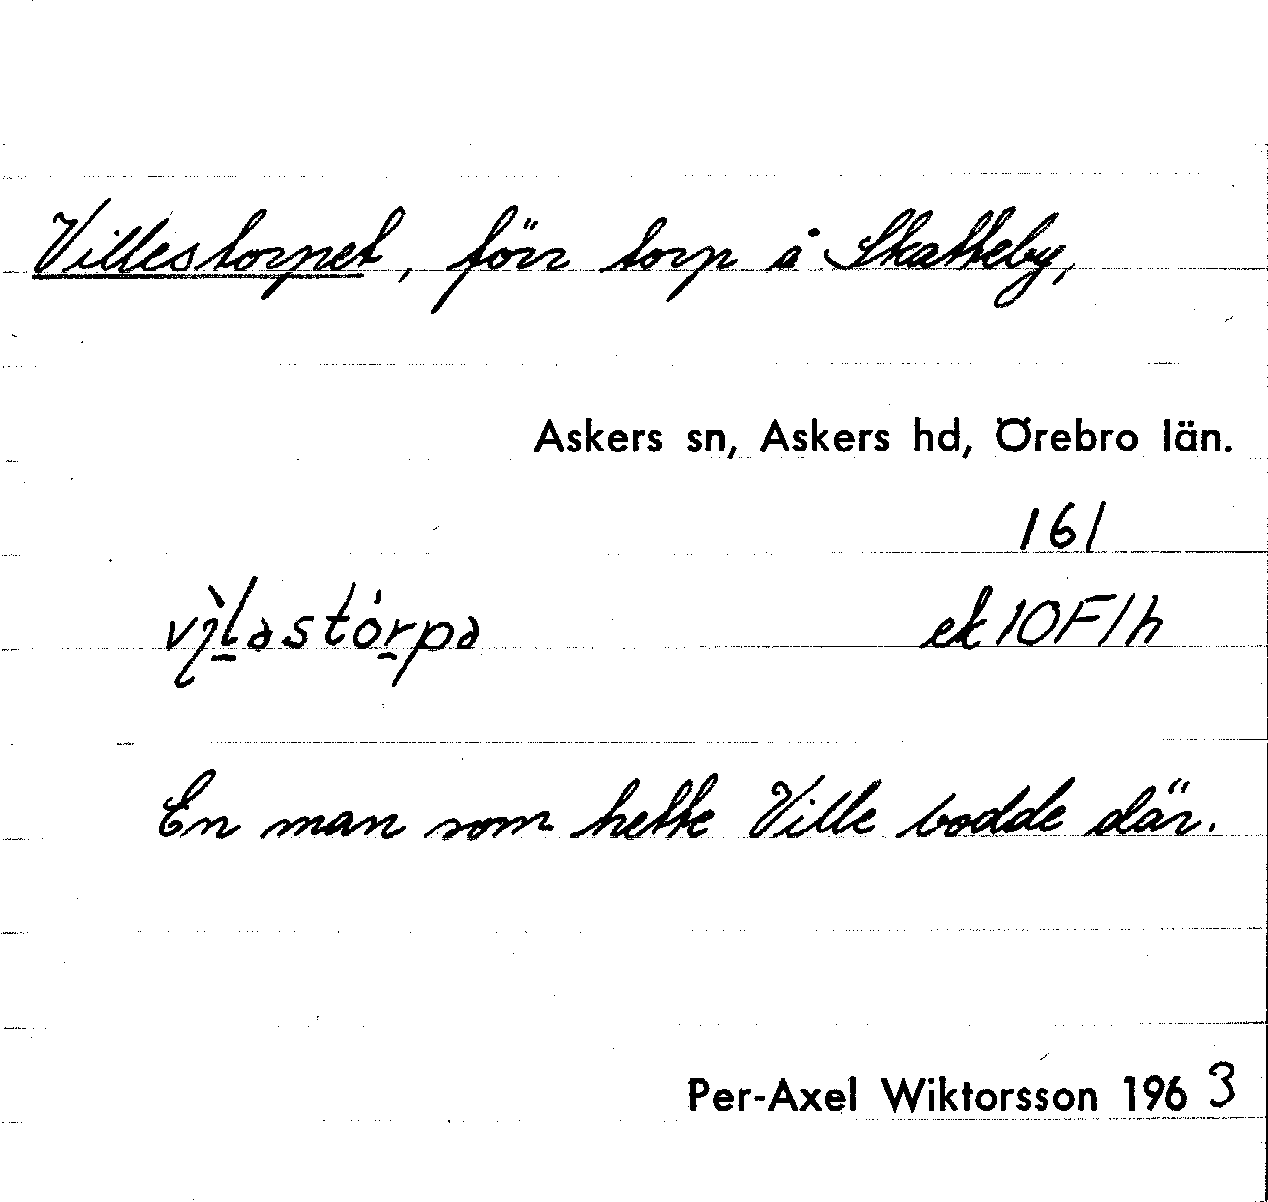 Villestorpet, förr torp å Skatteby,
Askers sn, Askers hd, Örebro län.
161
vı̨̀l̠əstór̠pə ek 10F1h
En man som hette Ville bodde där.
Per-Axel Wiktorsson 1963